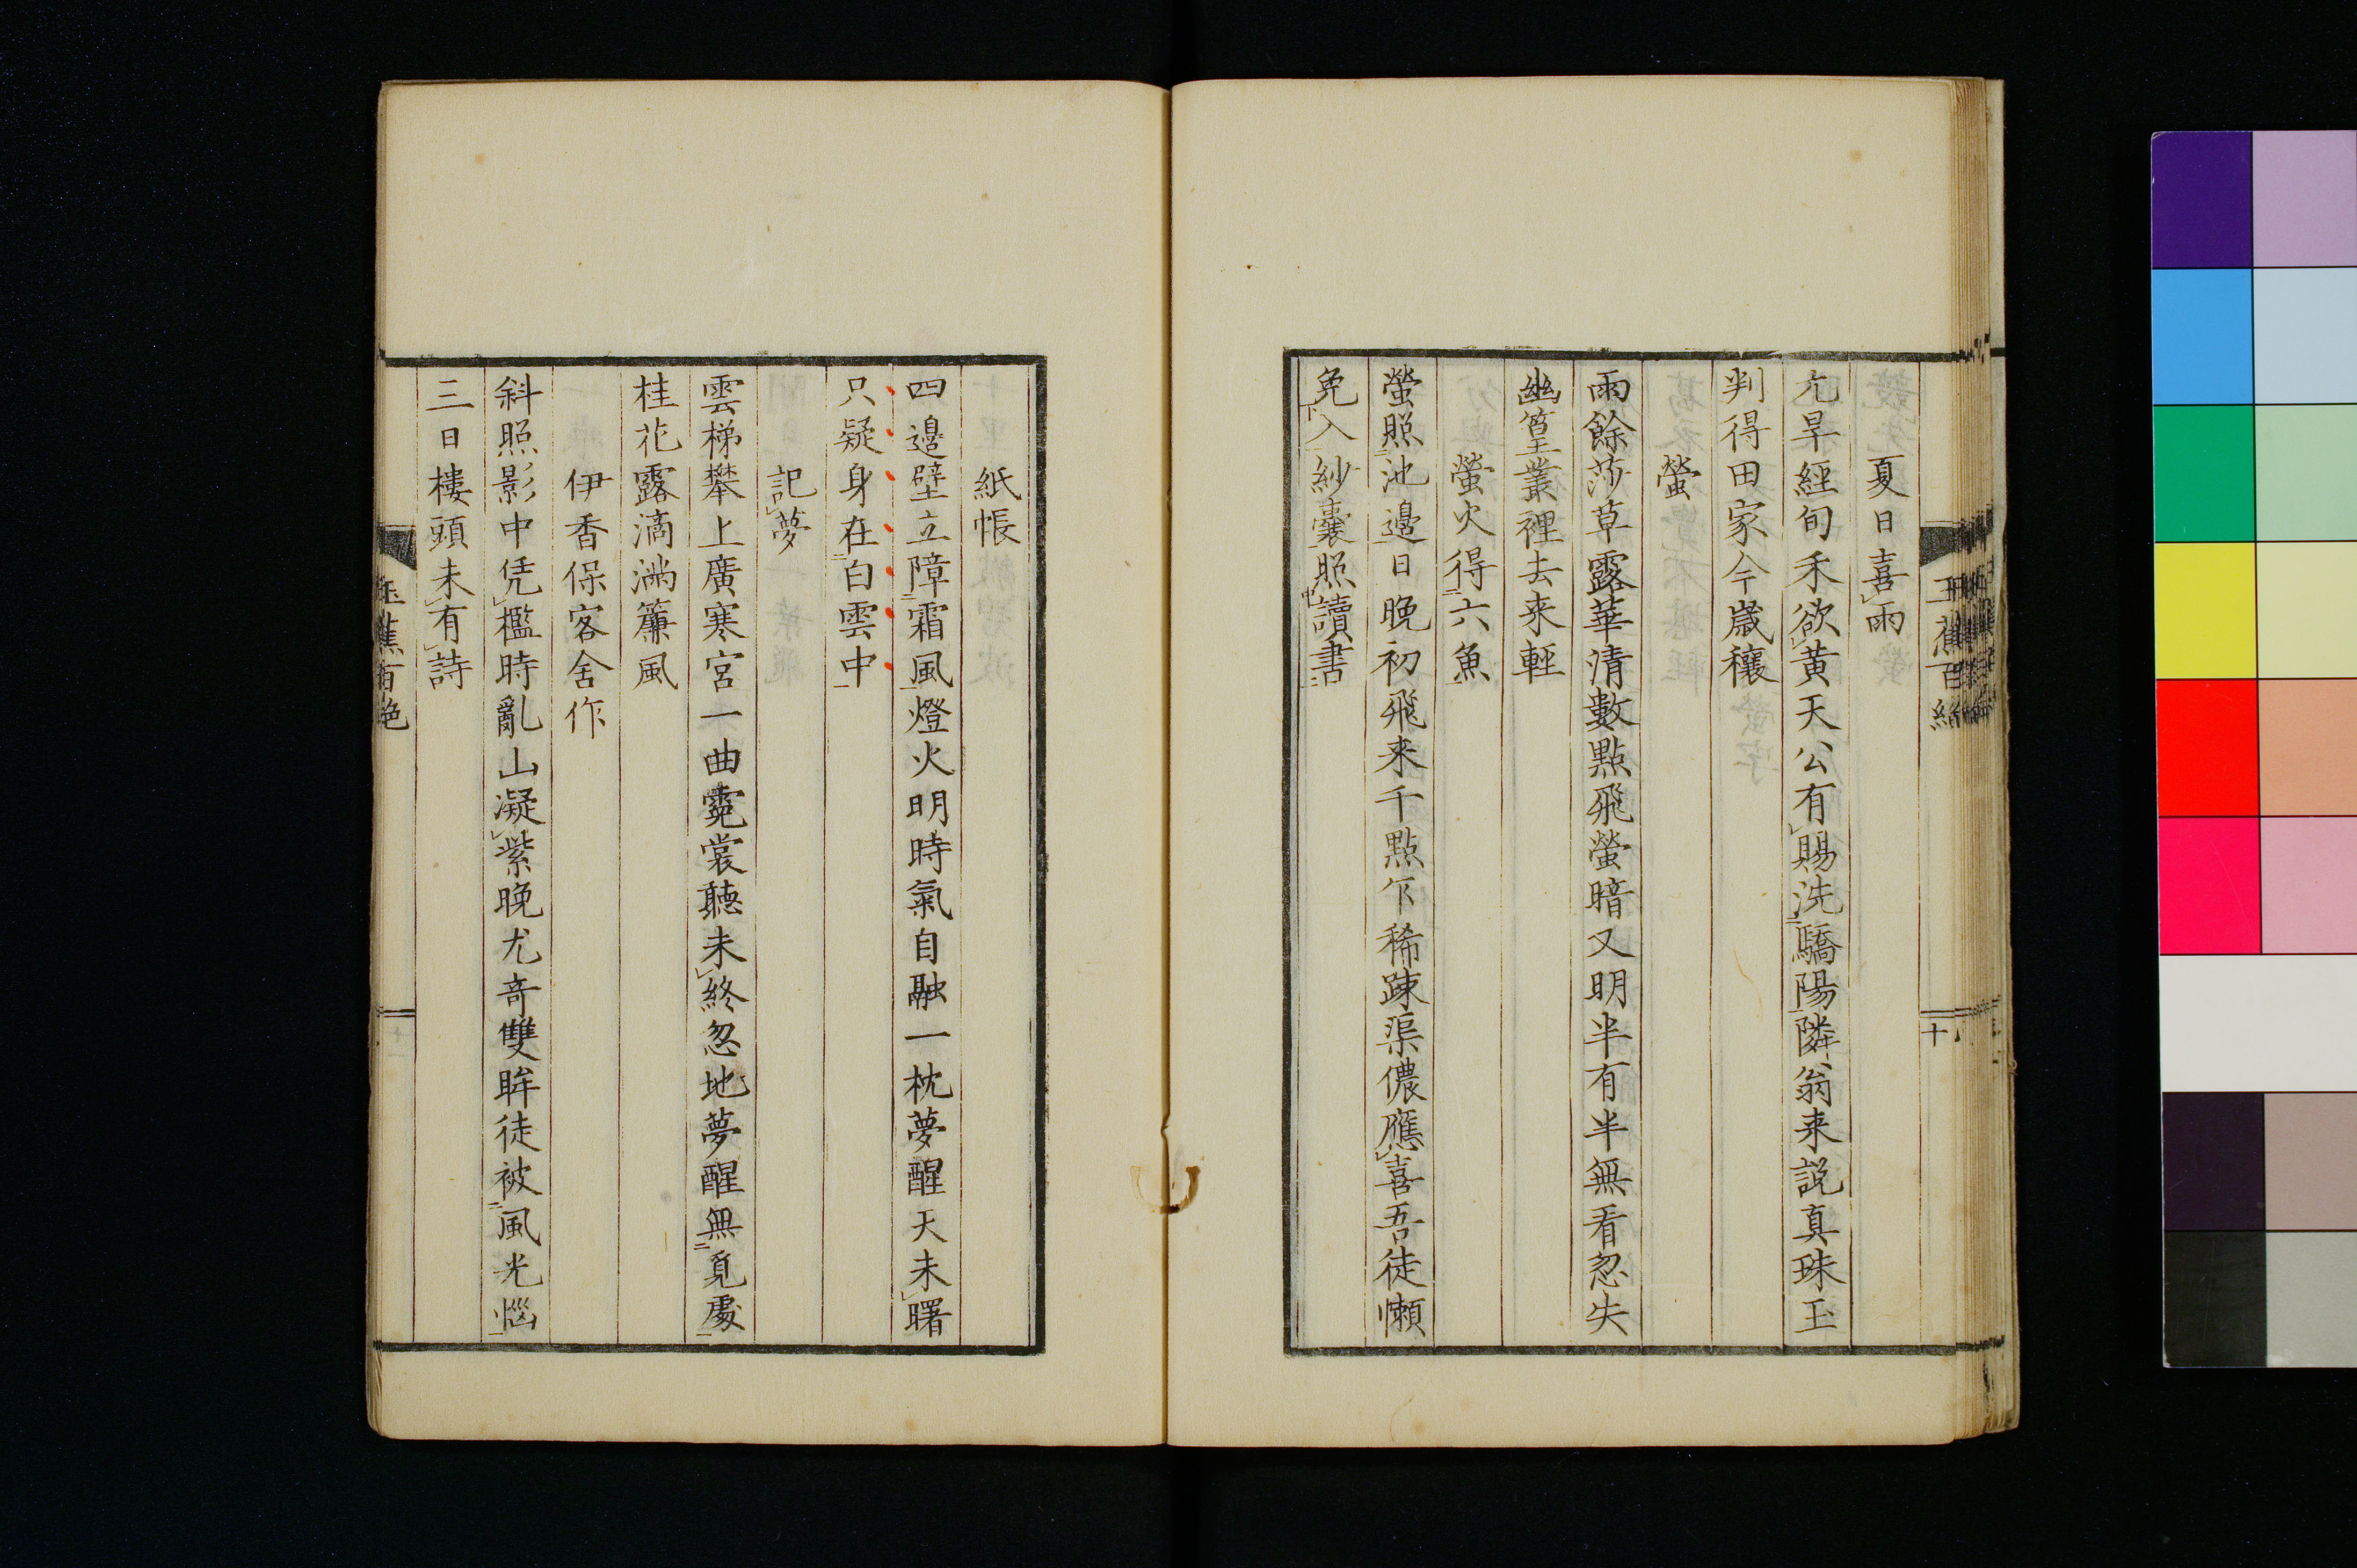 夏日喜雨
亢旱經旬禾欲黃天公有賜洗驕陽隣翁来説真珠玉
判得田家今歳穰
螢
雨餘莎草露華清數點飛螢暗又明半有半無看忽失
幽篁叢裡去来輕
螢火得六魚
螢照池邊日晩初飛来千點乍稀踈渠儂應喜吾徒懶
免入紗囊照讀書
玉蕉百絶
十
紙帳
四邊壁立障霜風燈火明時氣自融一枕夢醒天未曙
只疑身在白雲中
記夢
雲梯攀上廣寒宮一曲霓裳聽未終忽地夢醒無覓處
桂花露滴滿簾風
伊香保客舍作
斜照影中凭檻時亂山凝紫晚尤奇雙眸徒被風光惱
三日樓頭未有詩
玉蕉百絶